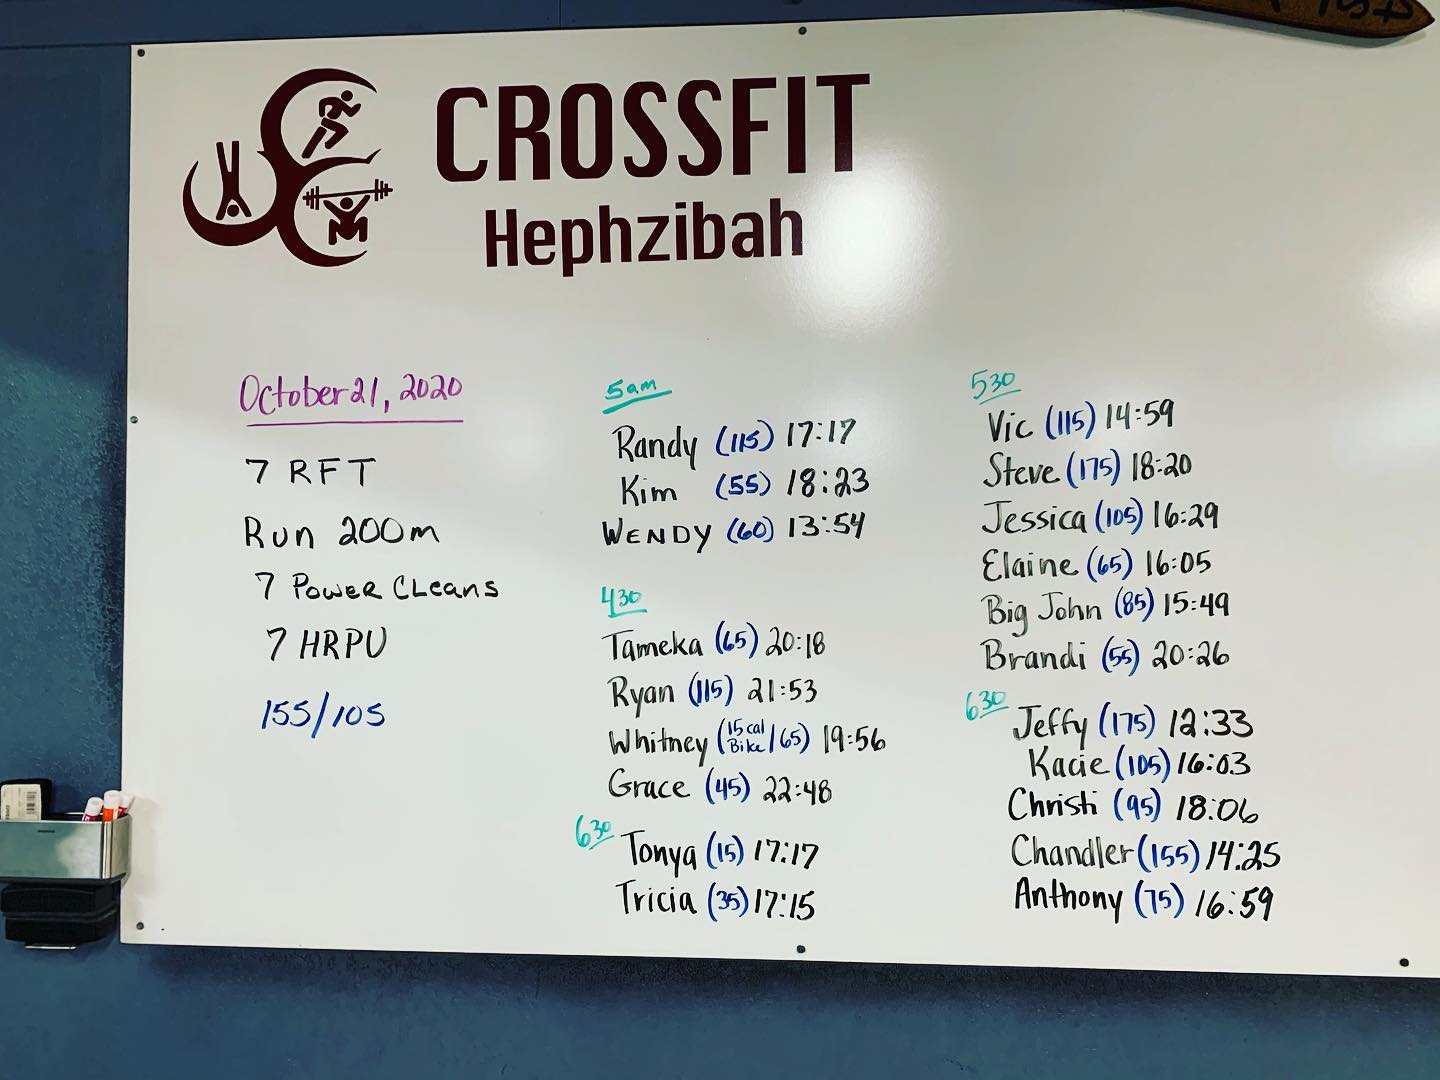 CROSSFIT
Hephzibah
October 21, 2020
7 RFT
Run 200m
7 Power Cleans
7 HRPU
155/105
5am
Randy (115) 17:17
Kim (55) 18:23
WENDY (60) 13:54
430
Tameka (65) 20:18
Ryan (115) 21:53
Whitney (15 cal Bike/65) 19:56
Grace (45) 22:48
630
Tonya (15) 17:17
Tricia (35) 17:15
530
Vic (115) 14:59
Steve (175) 18:20
Jessica (105) 16:29
Elaine (65) 16:05
Big John (85) 15:49
Brandi (55) 20:26
630
Jeffy (175) 12:33
Kacie (105) 16:03
Christi (95) 18:06
Chandler (155) 14:25
Anthony (75) 16:59